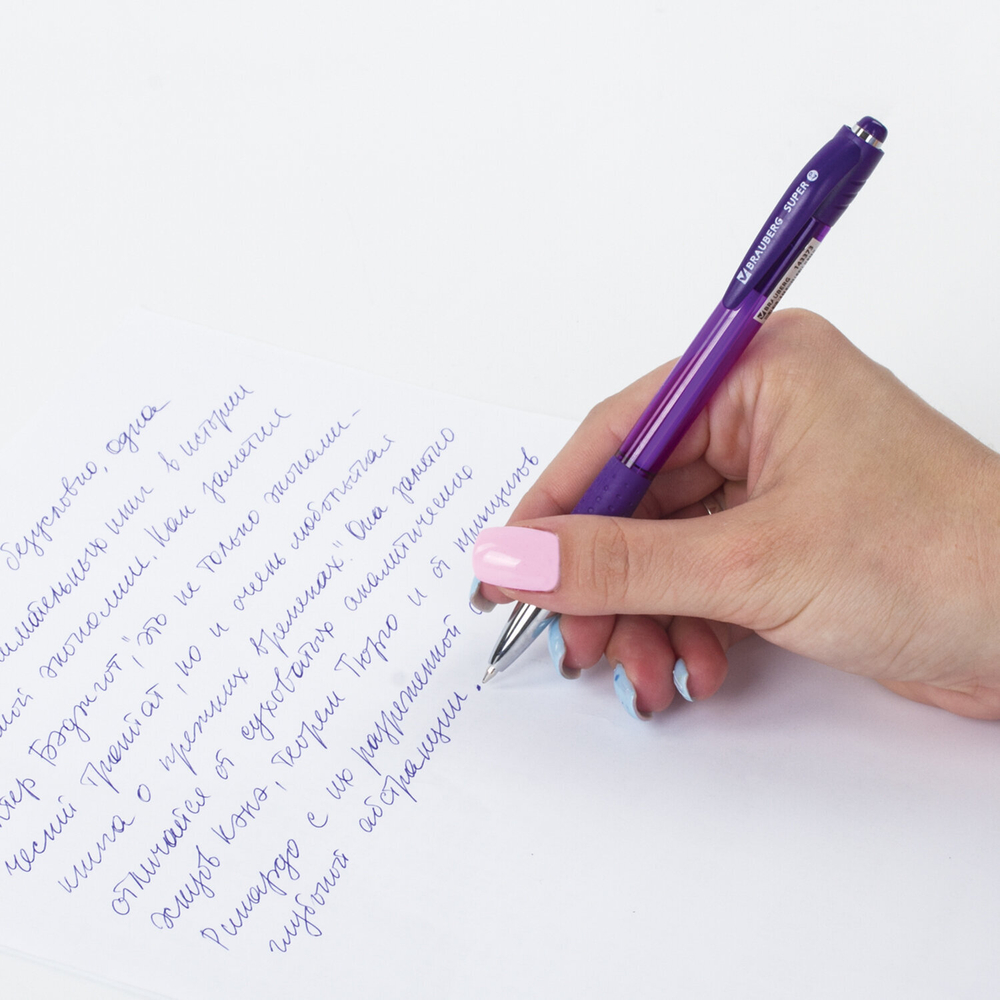 безусловно, одна
в истории
экономии. Как заметил
Бэджгот, "это не только экономи-
ческий трактат, но и очень любопытная
книга о прежних временах." Она заметно
отличается от суховатых аналитических
эскизов Кэнэ, Теорем Тюрго и от принципов
Рикардо с их разреженной
глубокой абстракции.
BRAUBERG SUPER
BRAUBERG 143373